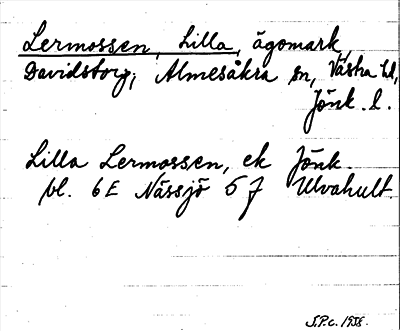 Lermossen, Lilla, ägomark,
Davidstorp, Almesåkra sn, Västra hd,
Jönk. l.
Lilla Lermossen, ek Jönk.
bl. 6E Nässjö 5 f Ulvahult.
S.P.C. 1958.